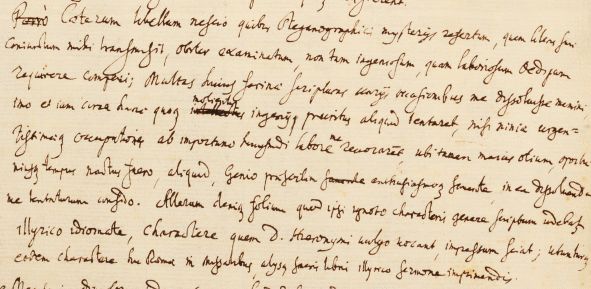 Porrò Coeterum libellum nescio quibus steganographici mysterijs refertum, quem literis suis
coniunctum mihi transmisit, obiter examinatum non tam ingeniosum, quam laboriosum Oedipum
requirere comperi; Multas huius farina scripturas varijs occasionibus me dissoluisse memini,
imo et iam circa hanc quoq ingenijq pruritus aliquid tentaret, nisi nimia urgen=
tissimaeq occupationes ab importuno huiusmodi labore me reuocarent, ubi tamen maius otium, oportu
niusq tempus nactus fuero, aliquid, Genio praesertim enthusiasmoq fauente, in ea dissoluenda
me tentaturum confido. Alterum deniq folium quod ipsi ignoto characteris genere scriptum uidebatur
illyrico idiomate, charactere quem D. Hieronymi uulgo uocant, impressum sciat; utunturq
eodem charactere hic Romae in missalibus, alijsq sacris libris illyrico sermone imprimendis.